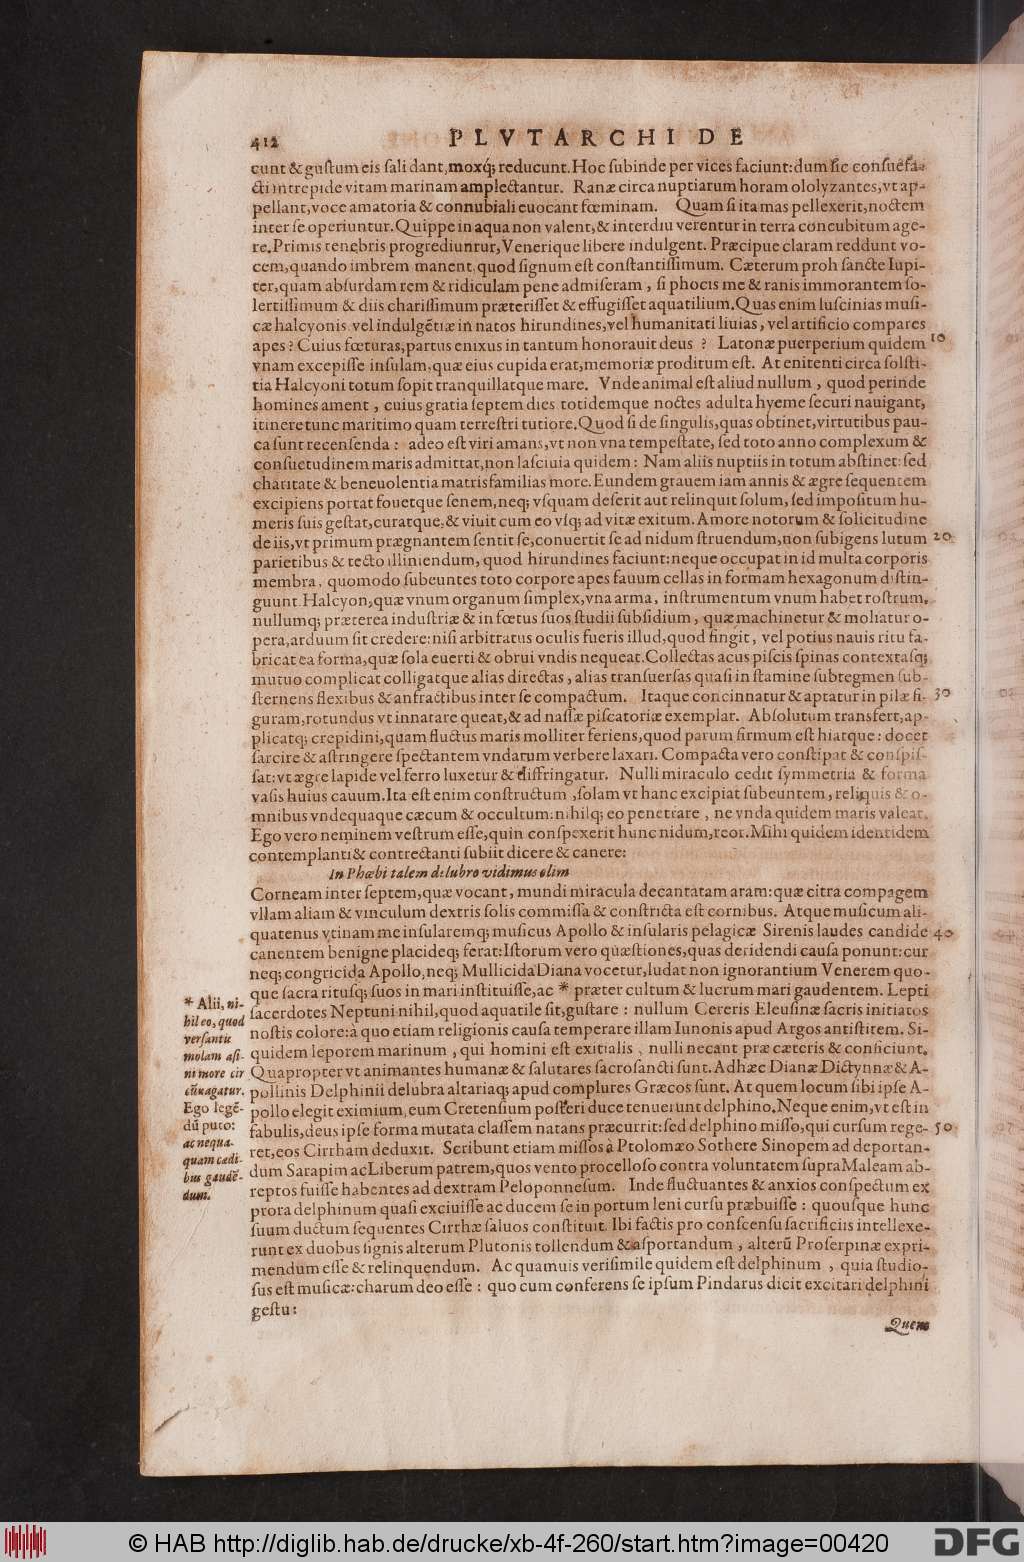 412
PLVTARCHI DE
cunt & gustum eis sali dant, moxq; reducunt. Hoc subinde per vices faciunt: dum sic consuefa-
cti intrepide vitam marinam amplectantur. Ranæ circa nuptiarum horam ololyzantes, vt ap-
pellant, voce amatoria & connubiali euocant fœminam. Quam si ita mas pellexerit, noctem
inter se operiuntur. Quippe in aqua non valent, & interdiu verentur in terra concubitum age-
re. Primis tenebris progrediuntur, Venerique libere indulgent. Præcipue claram reddunt vo-
cem, quando imbrem manent, quod signum est constantissimum. Cæterum proh sancte Iupi-
ter, quam absurdam rem & ridiculam pene admiseram, si phocis me & ranis immorantem so-
lertissimum & diis charissimum præterisset & effugisset aquatilium. Quas enim luscinias musi-
cæ halcyonis vel indulgẽtiæ in natos hirundines, vel humanitati liuias, vel artificio compares
apes? Cuius fœturas, partus enixus in tantum honorauit deus? Latonæ puerperium quidem 10
vnam excepisse insulam, quæ eius cupida erat, memoriæ proditum est. At enitenti circa solsti-
tia Halcyoni totum sopit tranquillatque mare. Vnde animal est aliud nullum, quod perinde
homines ament, cuius gratia septem dies totidemque noctes adulta hyeme securi nauigant,
itinere tunc maritimo quam terrestri tutiore. Quod si de singulis, quas obtinet, virtutibus pau-
ca sunt recensenda: adeo est viri amans, vt non vna tempestate, sed toto anno complexum &
consuetudinem maris admittat, non lasciuia quidem: Nam aliis nuptiis in totum abstinet: sed
charitate & beneuolentia matrisfamilias more. Eundem grauem iam annis & ægre sequentem
excipiens portat fouetque senem, neq; vsquam deserit aut relinquit solum, sed impositum hu-
meris suis gestat, curatque, & viuit cum eo vsq; ad vitæ exitum. Amore notorum & solicitudine
de iis, vt primum prægnantem sentit se, conuertit se ad nidum struendum, non subigens lutum 20
parietibus & tecto illiniendum, quod hirundines faciunt: neque occupat in id multa corporis
membra, quomodo subeuntes toto corpore apes fauum cellas in formam hexagonum distin-
guunt. Halcyon, quæ vnum organum simplex, vna arma, instrumentum vnum habet rostrum,
nullumq; præterea industriæ & in fœtus suos studii subsidium, quæ machinetur & moliatur o-
pera, arduum sit credere: nisi arbitratus oculis fueris illud, quod fingit, vel potius nauis ritu fa-
bricat ea forma, quæ sola euerti & obrui vndis nequeat. Collectas acus piscis spinas contextasq;
mutuo complicat colligatque alias directas, alias transuersas quasi in stamine subtegmen sub-
sternens flexibus & anfractibus inter se compactum. Itaque concinnatur & aptatur in pilæ fi- 30
guram, rotundus vt innatare queat, & ad nassæ piscatoriæ exemplar. Absolutum transfert, ap-
plicatq; crepidini, quam fluctus maris molliter feriens, quod parum firmum est hiatque: docet
sarcire & astringere spectantem vndarum verbere laxari. Compacta vero constipat & conspis-
sat: vt ægre lapide vel ferro luxetur & diffringatur. Nulli miraculo cedit symmetria & forma
vasis huius cauum. Ita est enim constructum, solam vt hanc excipiat subeuntem, reliquis & o-
mnibus vndequaque cæcum & occultum: nihilq; eo penetrare, ne vnda quidem maris valeat.
Ego vero neminem vestrum esse, quin conspexerit hunc nidum, reor. Mihi quidem identidem
contemplanti & contrectanti subiit dicere & canere:
In Phœbi talem delubro vidimus olim
Corneam inter septem, quæ vocant, mundi miracula decantatam aram: quæ citra compagem
vllam aliam & vinculum dextris solis commissa & constricta est cornibus. Atque musicum ali-
quatenus vtinam me insularemq; musicus Apollo & insularis pelagicæ Sirenis laudes candide 40
canentem benigne placideq; ferat: Istorum vero quæstiones, quas deridendi causa ponunt: cur
neq; congricida Apollo, neq; Mullicida Diana vocetur, ludat non ignorantium Venerem quo-
que sacra ritusq; suos in mari instituisse, ac * præter cultum & lucrum mari gaudentem. Lepti
sacerdotes Neptuni nihil, quod aquatile sit, gustare: nullum Cereris Eleusinæ sacris initiatos
nostis colore: à quo etiam religionis causa temperare illam Iunonis apud Argos antistitem. Si-
quidem leporem marinum, qui homini est exitialis, nulli necant præ cæteris & conficiunt.
Quapropter vt animantes humanæ & salutares sacrosancti sunt. Adhæc Dianæ Dictynnæ & A-
pollinis Delphinii delubra altariaq; apud complures Græcos sunt. At quem locum sibi ipse A-
pollo elegit eximium, eum Cretensium posteri duce tenuerunt delphino. Neque enim, vt est in
fabulis, deus ipse forma mutata classem natans præcurrit: sed delphino misso, qui cursum rege- 50
ret, eos Cirrham deduxit. Scribunt etiam missos à Ptolomæo Sothere Sinopem ad deportan-
dum Sarapim ac Liberum patrem, quos vento procelloso contra voluntatem supra Maleam ab-
reptos fuisse habentes ad dextram Peloponnesum. Inde fluctuantes & anxios conspectum ex
prora delphinum quasi exciuisse ac ducem se in portum leni cursu præbuisse: quousque hunc
suum ductum sequentes Cirrhæ saluos constituit. Ibi factis pro conscensu sacrificiis intellexe-
runt ex duobus signis alterum Plutonis tollendum & asportandum, alterũ Proserpinæ expri-
mendum esse & relinquendum. Ac quamuis verisimile quidem est delphinum, quia studio-
sus est musicæ: charum deo esse: quo cum conferens se ipsum Pindarus dicit excitari delphini
gestu:
Quem
* Alii, ni-
hil eo, quod
versantũ
molam asi-
ni more cir
cũuagatur.
Ego legẽ-
dũ puto:
ac nequa-
quam cædi-
bus gaudẽ-
dum.
© HAB http://diglib.hab.de/drucke/xb-4f-260/start.htm?image=00420
DFG